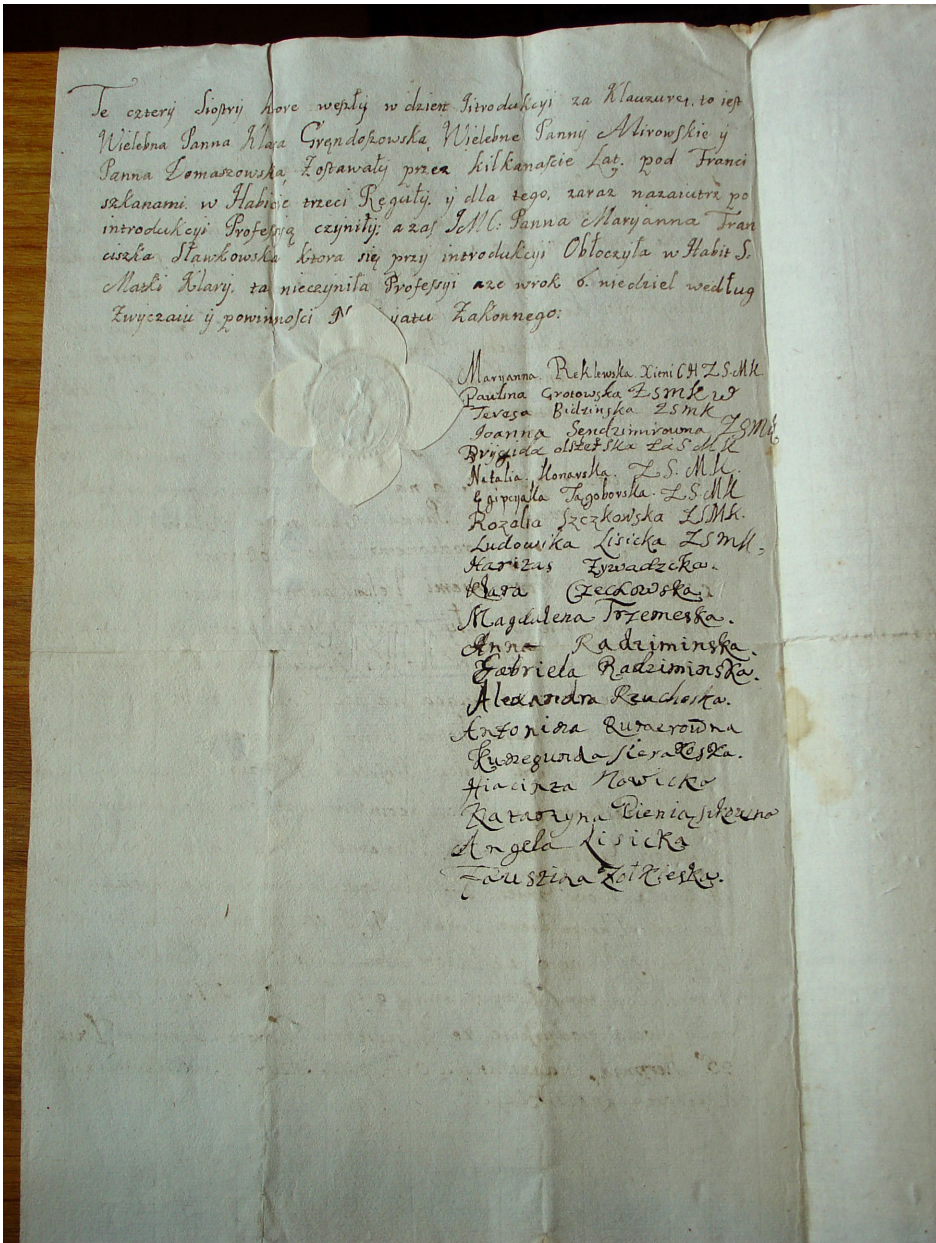 Te czterÿ Siostrÿ ktore weszłÿ w dzien Itrodukcyi za Klauzurę, to iest
Wielebna Panna Klara Gręndoszowska, Wielebne Pannÿ Mirowskie ÿ
Panna Domaszowska, Zostawałÿ przez kilkanaście Lat, pod Franci
szkanami w Habicie trzeci Regułÿ, ÿ dla tego, zaraz nazaiutrz po
introdukcyi Professią czyniłÿ; a zaś JM: Panna Maryanna Fran
ciszka Sławkowska ktora się przÿ introdukcyi Obłoczyła w Habit S.
Matki Klarÿ, ta nieczyniła Professyi aże wrok 6. niedziel według
Zwyczaiu ÿ powinności Zakonnego:
Maryanna Reklewska Xieni CH Z S. MK
Paulina Grotowska ZSMK
Teresa Bidzinska ZSMK
Joanna Sendzimirowna ZSMK
Brÿgida Olszefska ZaSMK
Natalia Konarska Z S. MK.
Egipcÿałla Tagoborska Z S. MK
Rozalia Szczkowska ZSMK.
Ludowika Lisicka ZSMK.
Harizas Zywadzcka.
Klara Czechowska
Magdalena Trzemeska.
Anna Radziminska.
Gabriela Radziminska.
Alexandra Rzuchoska.
Antonina
Kunegunda Sierakoska.
Hiacinta Nowicka
Katarzyna
Angela Lisicka
Faustina Zołkieska.